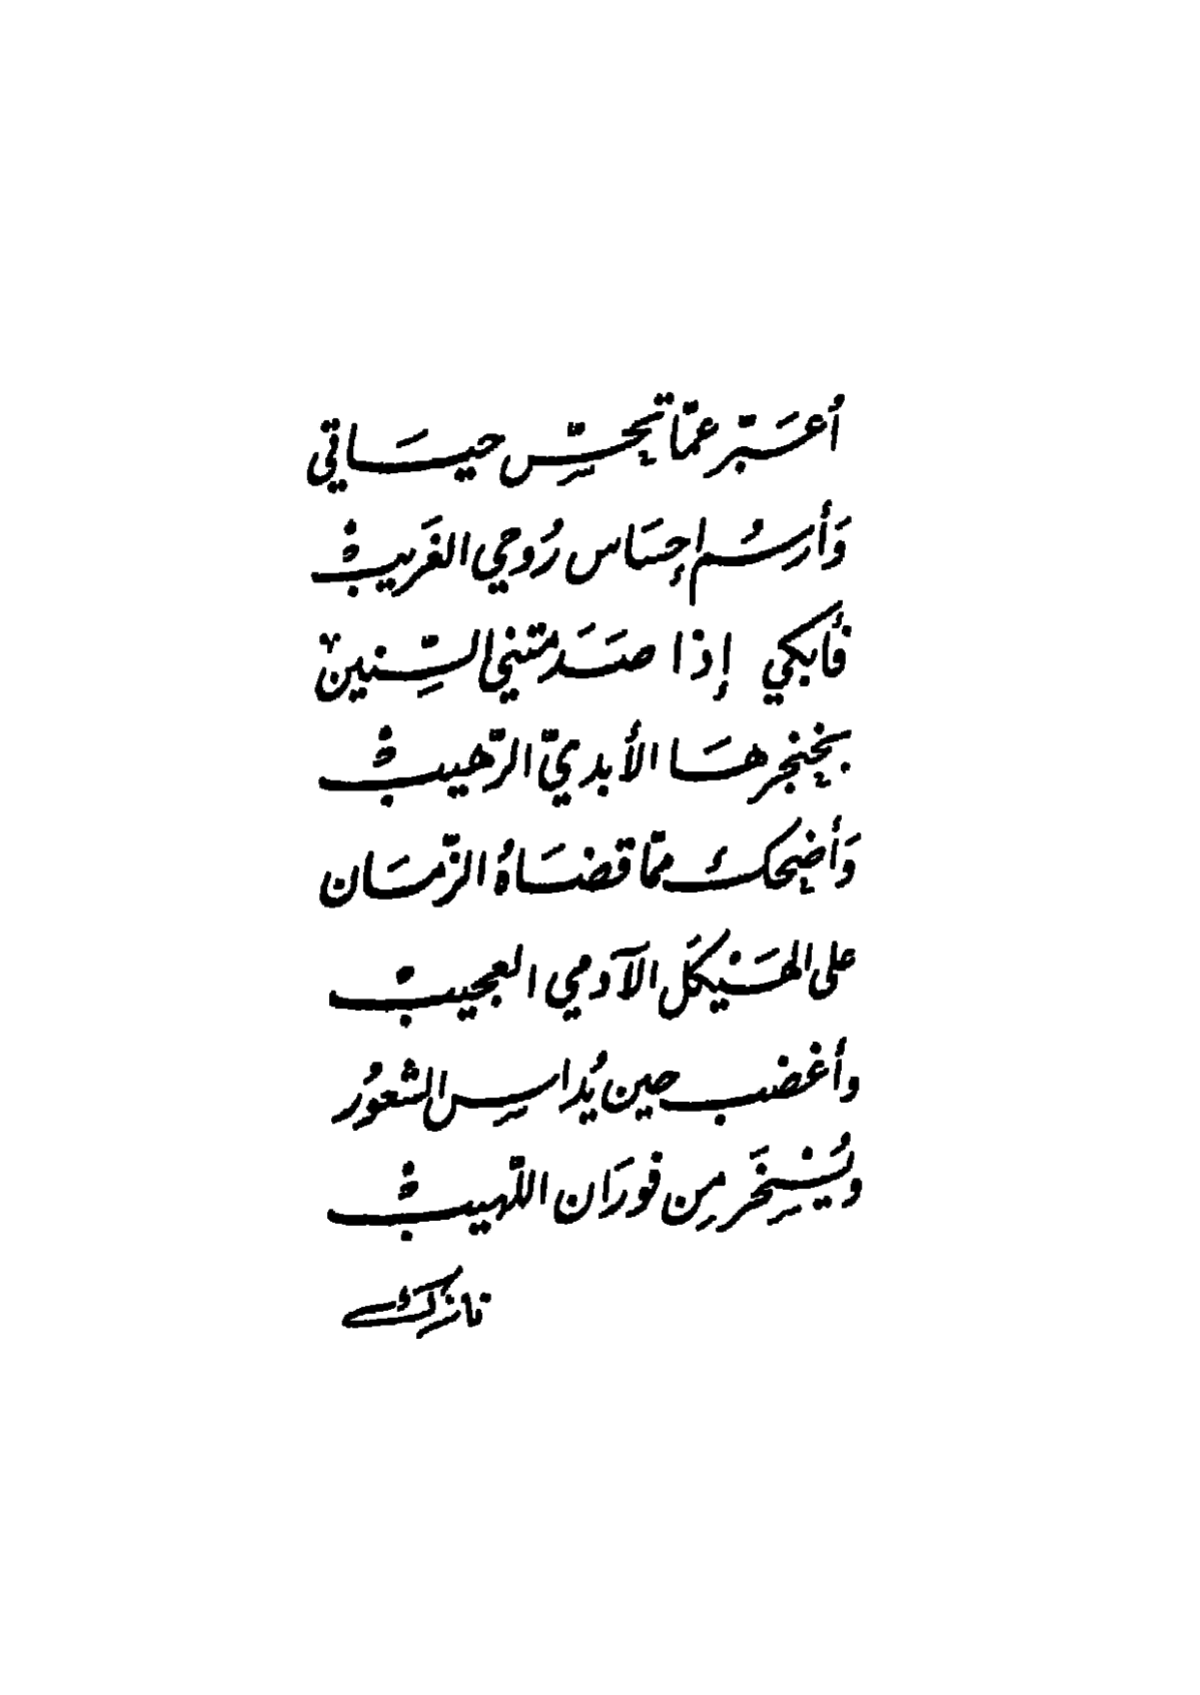 أُعَبّر عمّا تحِسّ حيَاتي
وَأرسُم إحسَاس رُوحي الغَريبْ
فأبكي إذا صَدَمتني السِّنينْ
بخنجرهَا الأبديّ الرّهيبْ
وَأضحك ممّا قضَاهُ الزّمَان
على الهَيْكَل الآدمي العجيب
وأغضب حين يُداس الشعورُ
ويُسْخَر مِن فورَان اللّهيبْ
نازك